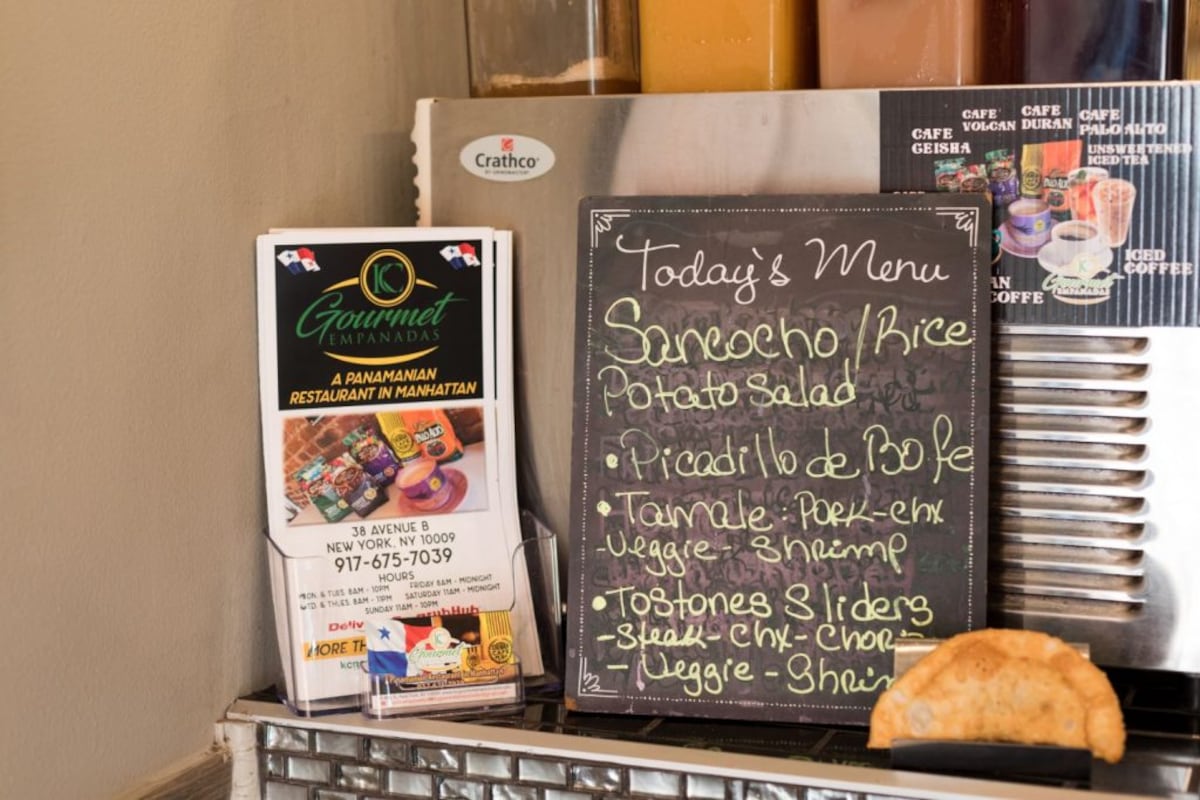 Crathco
BY GRINDMASTER
CAFE GEISHA
CAFE VOLCAN
CAFE DURAN
CAFE PALO ALTO
UNSWEETENED ICED TEA
ICED COFFEE
AN COFFE
Gourmet
EMPANADAS
KC
Gourmet
EMPANADAS
A PANAMANIAN
RESTAURANT IN MANHATTAN
PALO ALTO
38 AVENUE B
NEW YORK, NY 10009
917-675-7039
HOURS
MON. & TUES. 8AM - 10PM FRIDAY 8AM - MIDNIGHT
WED. & THUES. 8AM - 11PM SATURDAY 11AM - MIDNIGHT
SUNDAY 11AM - 10PM
Deliv
rubHub
MORE TH
Gourmet
A Panamanian Restaurant in Manhattan
Today's Menu
Sancocho/Rice
Potato Salad
• Picadillo de Bofe
• Tamale: Pork-chx
-Veggie- Shrimp
• Tostones Sliders
-Steak- Chx- Chori
- Veggie - Shrim